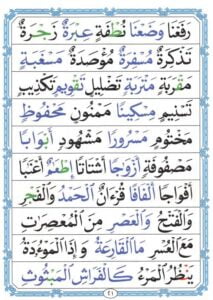 رَفَعْنَا وَضَعْنَا نُطْفَةٍ عِبْرَةٌ زَجْرَةٌ
تَذْكِرَةٌ مُسْفِرَةٌ مُؤْصَدَةٌ مَسْغَبَةٍ
مَقْرَبَةٍ مَتْرَبَةٍ تَضْلِيلٍ تَقْوِيمٍ تَكْذِيبٍ
تَسْنِيمٍ مِسْكِينًا مَمْنُونٍ مَحْفُوظٍ
مَخْتُومٍ مَسْرُورًا مَشْهُودٍ أَبْوَابًا
مَصْفُوفَةٌ أَزْوَاجًا أَشْتَاتًا إِطْعَامٌ أَعْنَابًا
أَفْوَاجًا أَلْفَافًا قُرْءَانٌ الْحَمْدُ وَالْفَجْرِ
وَالْفَتْحُ وَالْعَصْرِ مِنَ الْمُعْصِرَٰتِ
مَعَ الْعُسْرِ مَا الْقَارِعَةُ وَإِذَا الْمَوْءُۥدَةُ
يَنْظُرُ الْمَرْءُ كَالْفَرَاشِ الْمَبْثُوثِ
٢١